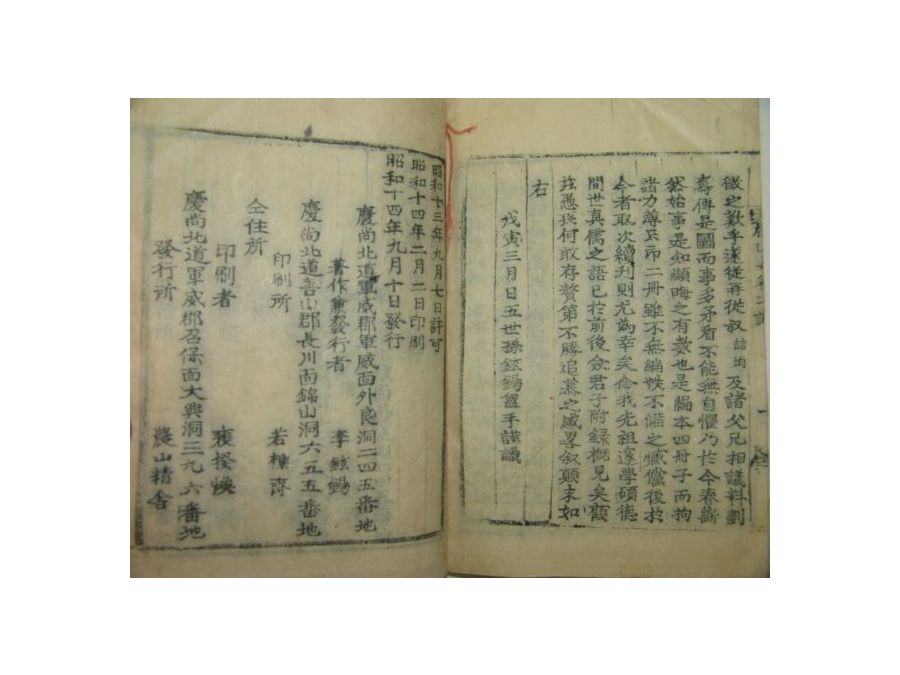 徵之歎乎遂從再從叔喆均及諸父兄相議料劃
壽傳是圖而事多矛盾不能無自懼乃於今春斷
然始事是知顯晦之有數也是編本四冊子而拘
諸力尊只印二冊雖不無編帙不備之憾儻後於
今者取次續刊則尤為幸矣念我先祖邃學碩德
間世真儒之語已於前後僉君子附錄概見矣顧
玆愚㧾何敢存贅第不勝追慕之感畧叙顛末如
右
戊寅三月日五世孫鉉錫盥手謹識
昭和十三年九月七日許可
昭和十四年二月二日印刷
昭和十四年九月十日發行
慶尚北道軍威郡軍威面外良洞二四五番地
著作兼發行者 李鉉錫
慶尚北道善山郡長川面錦山洞六五五番地
印刷所 若樵齋
仝住所
印刷者
慶尚北道軍威郡召保面大興洞三九六番地
發行所 農山精舍